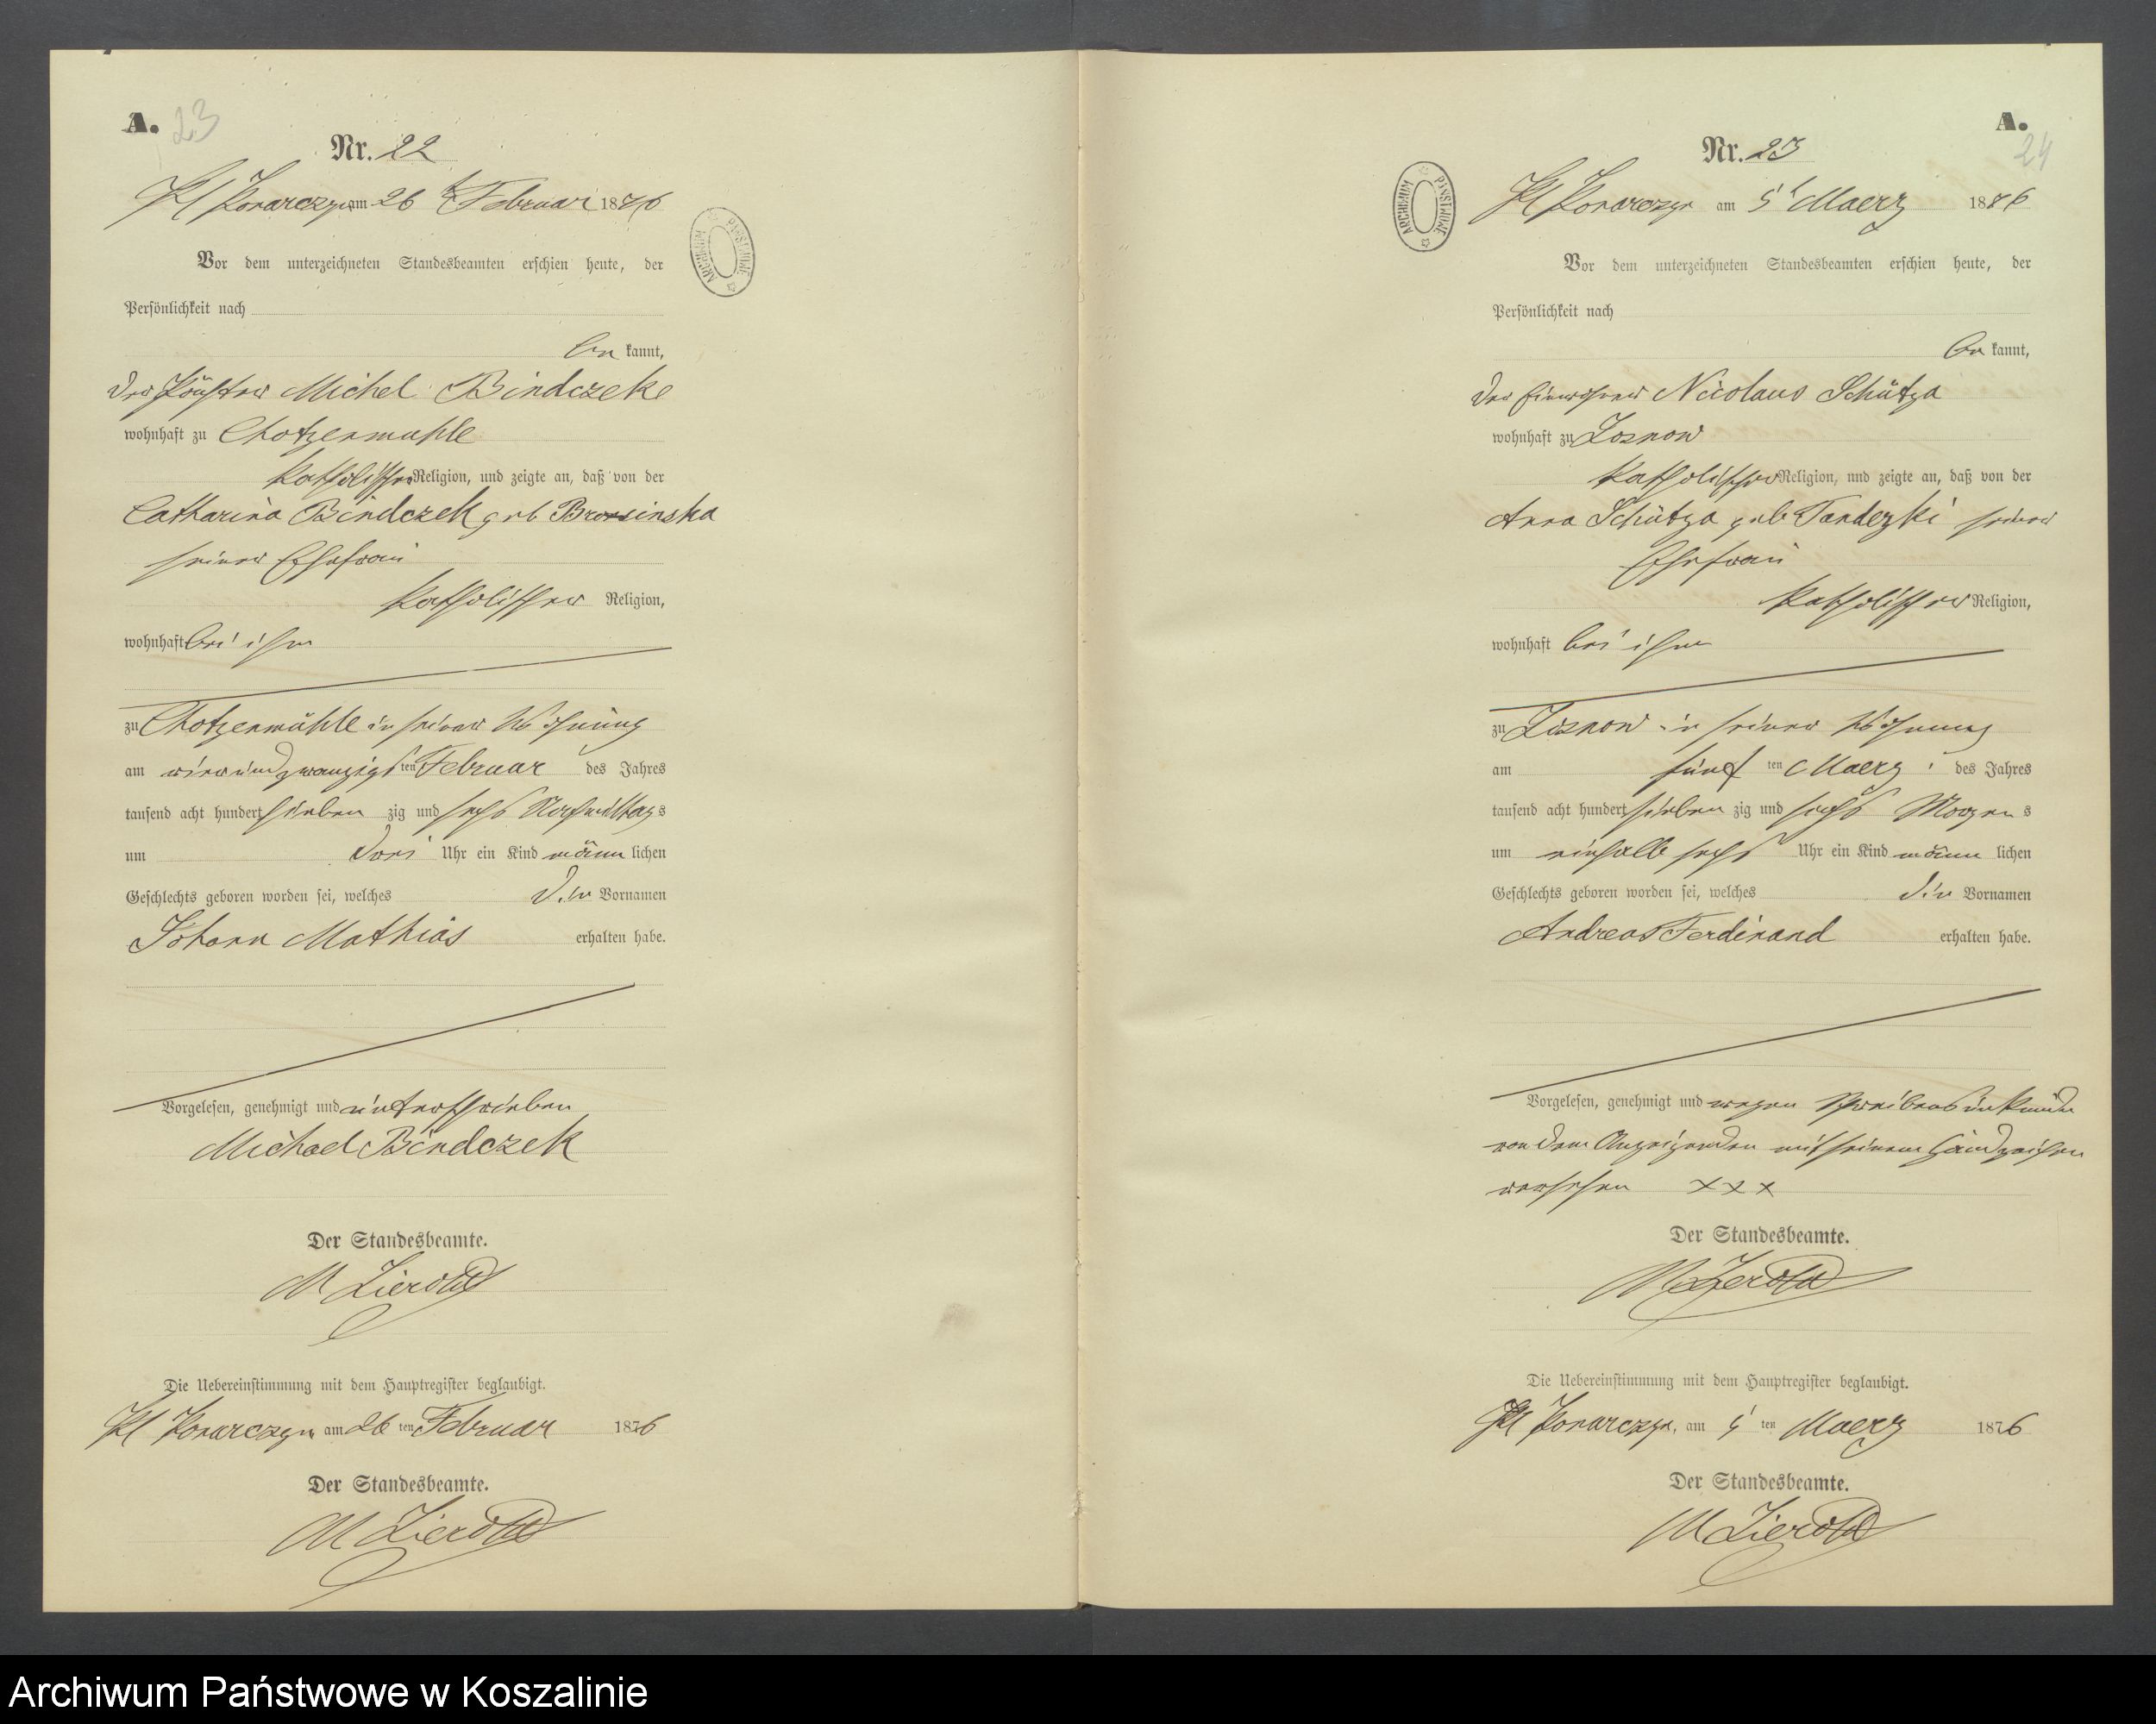 A. 23
Nr. 22
Kl Konarczyn am 26 t Februar 1876
Vor dem unterzeichneten Standesbeamten erschien heute, der
Persönlichkeit nach
be kannt,
der Michel Bindczeke
wohnhaft zu Chotzenmuhle
katholischer Religion, und zeigte an, daß von der
Catharina Bindczek geb
seiner Ehefrau
katholischer Religion,
wohnhaft bei ihm
zu Chotzenmühle in seiner Wohnung
am vierundzwanzigsten ten Februar des Jahres
tausend acht hundert sieben zig und sechs Nachmittags
um drei Uhr ein Kind männ lichen
Geschlechts geboren worden sei, welches die Vornamen
Johann Mathias erhalten habe.
Vorgelesen, genehmigt und unterschrieben
Michael Bindczek
Der Standesbeamte.
M Zierold
Die Uebereinstimmung mit dem Hauptregister beglaubigt.
Kl Konarczyn am 26 ten Februar 1876
Der Standesbeamte.
M Zierold
ARCHIWUM PAŃSTWOWE
A.
24
Nr. 23
Kl Konarczyn am 5 t Maerz 1876
Vor dem unterzeichneten Standesbeamten erschien heute, der
Persönlichkeit nach
be kannt,
der Einwohner Nicolaus Schütza
wohnhaft zu Zosnow
katholischer Religion, und zeigte an, daß von der
Anna Schütza geb Tandezki seiner
Ehefrau
katholischer Religion,
wohnhaft bei ihm
zu Zosnow in seiner Wohnung
am fünf ten Maerz des Jahres
tausend acht hundert sieben zig und sechs Morgens
um einhalb sechs Uhr ein Kind männ lichen
Geschlechts geboren worden sei, welches die Vornamen
Andreas Ferdinand erhalten habe.
Vorgelesen, genehmigt und wegen Schreibensunkunde
von dem Anzeigenden mit seinem Handzeichen
versehen x x x
Der Standesbeamte.
M Zierold
Die Uebereinstimmung mit dem Hauptregister beglaubigt.
Kl Konarczyn, am 5 ten Maerz 1876
Der Standesbeamte.
M Zierold
ARCHIWUM PAŃSTWOWE
Archiwum Państwowe w Koszalinie